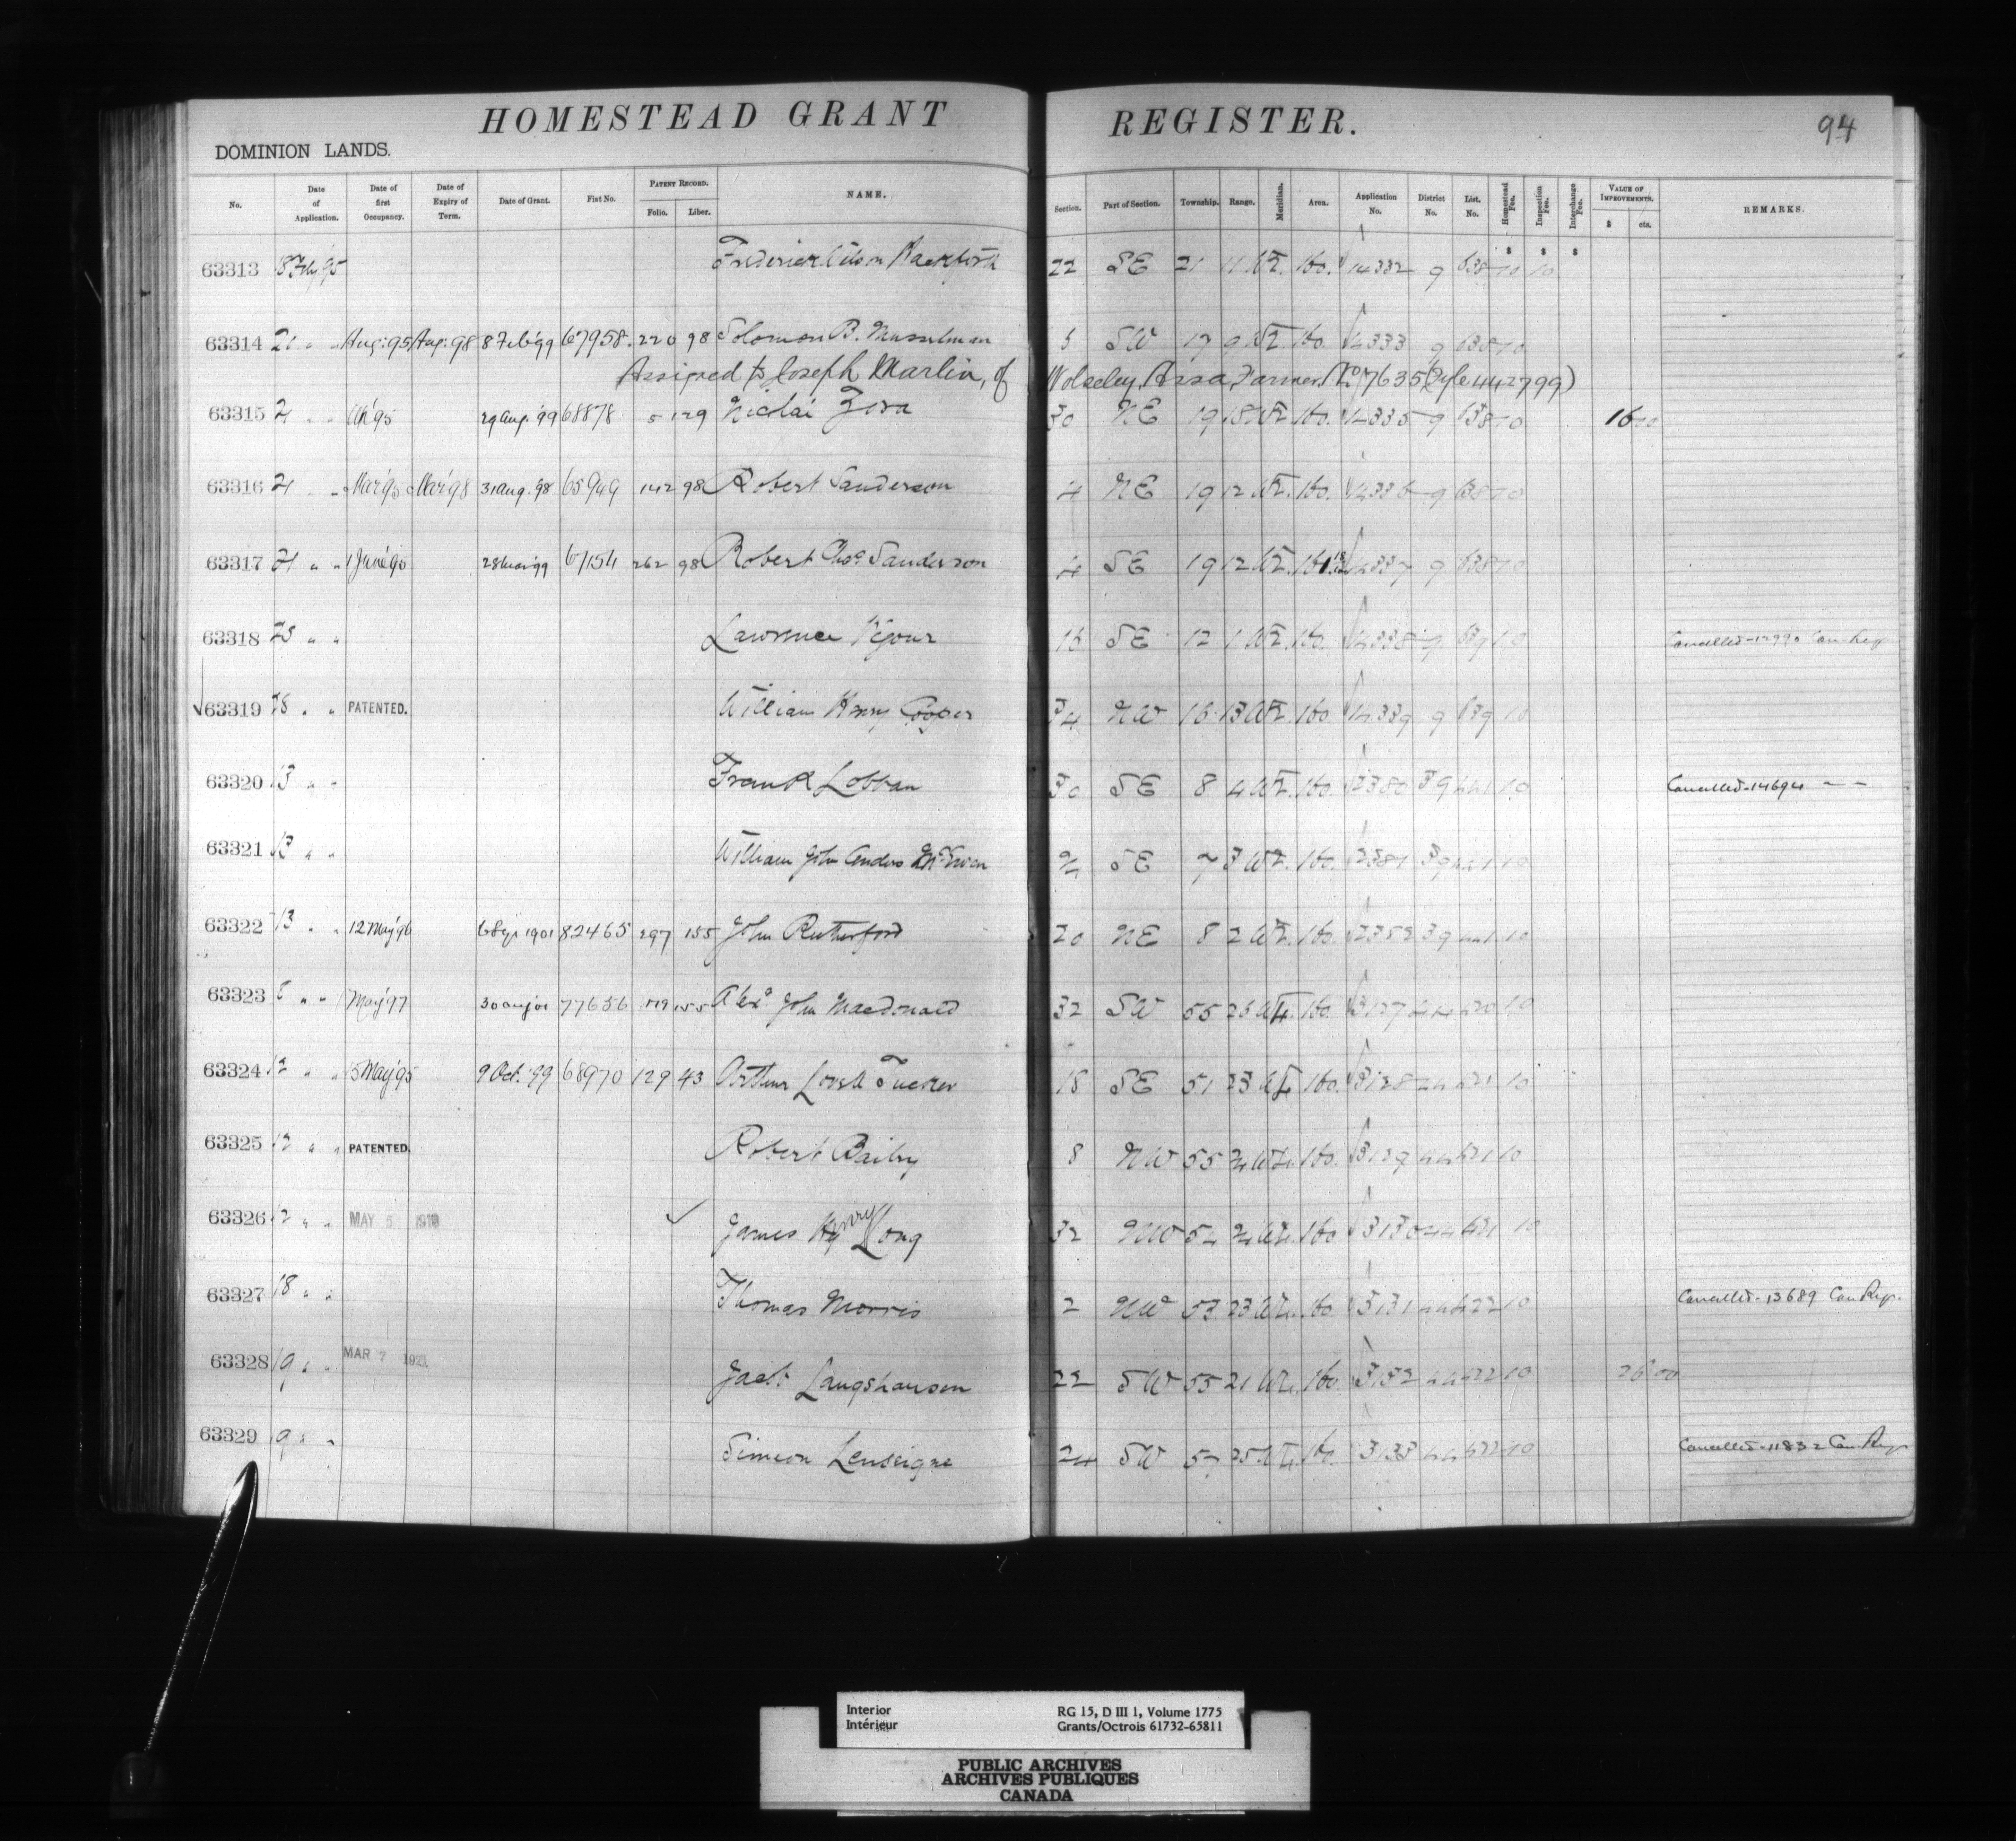 HOMESTEAD GRANT REGISTER.
94
DOMINION LANDS.
No. Date of Application. Date of first Occupancy. Date of Expiry of Term. Date of Grant. Fiat No. PATENT RECORD. Folio. Liber. NAME. Section. Part of Section. Township. Range. Meridian. Area. Application No. District No. List. No. Homestead Fee. Inspection Fee. Interchange Fee. VALUE OF IMPROVEMENTS. $ cts. REMARKS.
63313 Feby 95 Frederick 22 SE 21 11 W2. 160. 14332 9 638 10 10
63314 21 " " Aug: 95 Aug: 98 8 Feb 99 67958 220 98 Solomon B. Musselman SW 17 9 W2. 160. 14333 9 638 10
Assigned to Joseph Marlin, of Wolseley, Assa, Farmer. No 17635 (Ryle 442799)
63315 21 " " 29 Aug. 99 68878 5 129 Nicolai Zora 30 NE 19 18 W2. 160. 14335 9 638 10 16 00
63316 21 " " Mar 95 Mar 98 31 Aug. 98 65949 142 98 Robert Sanderson 4 NE 19 12 W2. 160. 14336 9 638 10
63317 21 " " 1 June 95 28 Mar 99 67154 262 98 Robert Chas Sanderson 4 SE 19 12 W2. 14337 9 638 10
63318 25 " " Lawrence 16 SE 12 1 W2. 160. 14338 9 639 10 Cancelled - 12990 Can. Reg.
63319 28 " " PATENTED. William Henry Cooper 34 NW 16 13 W2. 160 14339 9 639 10
63320 13 " " Frank Lobban 30 SE 8 4 W2. 160. 12380 39 441 10 Cancelled - 14694 " "
63321 13 " " William John Anders McEwen SE 7 3 W2. 160. 12381 39 441 10
63322 13 " " 12 May 96 6 Sep 1901 82465 297 155 John Rutherford 20 NE 8 2 W2. 160. 12382 39 441 10
63323 " " 1 May 97 30 Aug 01 77656 155 Alexr John Macdonald 32 SW 55 W4. 160. 3127 44 10
63324 12 " " 15 May 95 9 Oct. 99 68970 129 43 Arthur Lovell Tucker 18 SE 51 23 W4 160. 3128 44 421 10
63325 12 " " PATENTED. Robert Bailey 8 NW 55 W4. 160. 3129 44 421 10
63326 12 " " MAY 5 1910 James Hy Henry Long 32 NW 54 W4. 160 3130 44 421 10
63327 18 " " Thomas Morris 2 NW 53 23 W4. 160 3131 44 422 10 Cancelled - 13689 Can. Reg.
63328 19 " " MAR 7 1921. Jacob Langshausen 22 SW 55 21 W4. 160 3132 44 422 10 26 00
63329 19 " " Simeon Lenseigne 24 SW 57 25 W4. 160. 3133 44 422 10 Cancelled - 11832 Can. Reg.
Interior
Intérieur
RG 15, D III 1, Volume 1775
Grants/Octrois 61732-65811
PUBLIC ARCHIVES
ARCHIVES PUBLIQUES
CANADA